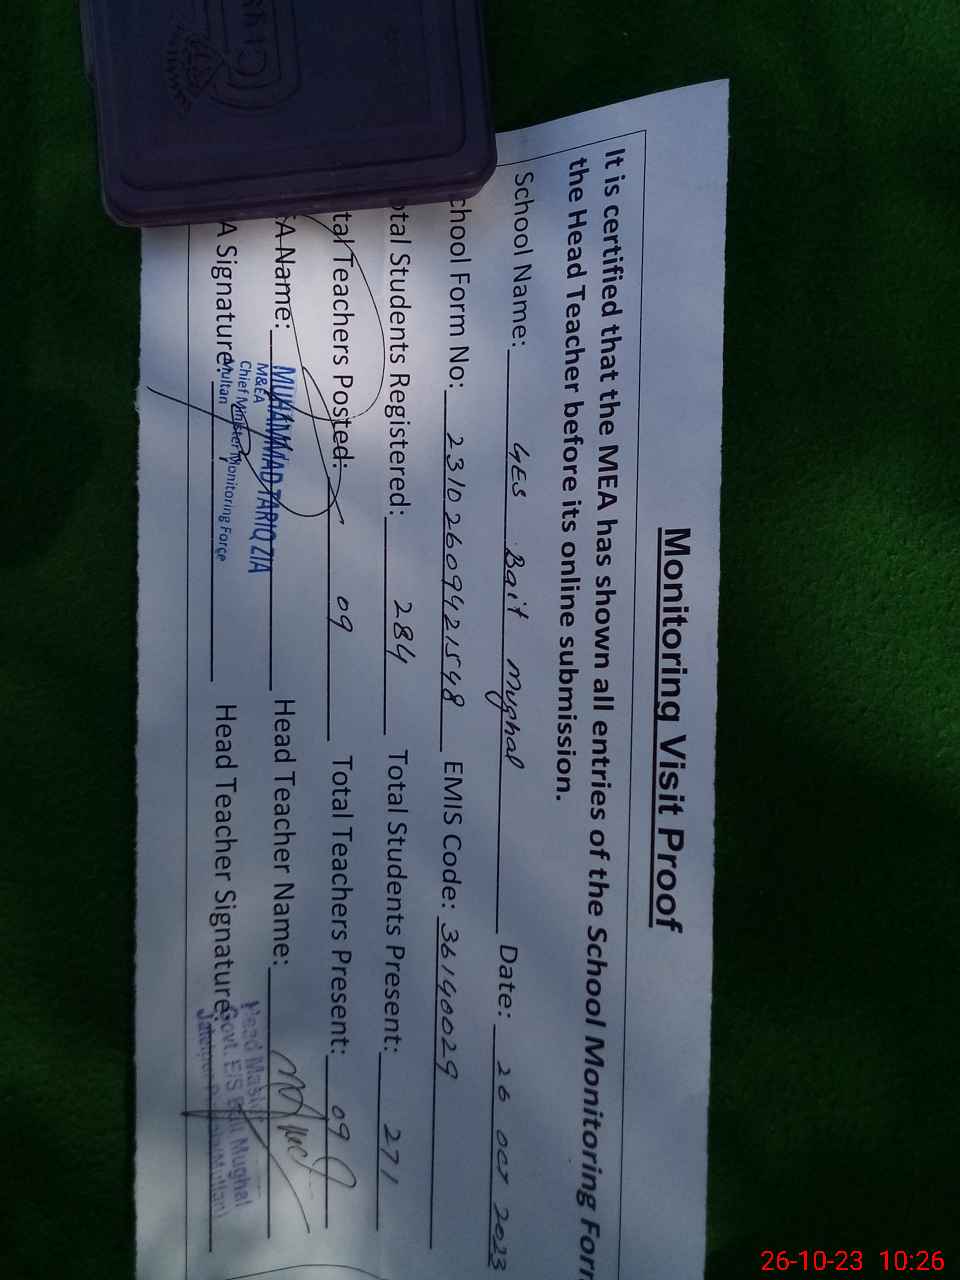 Monitoring Visit Proof
It is certified that the MEA has shown all entries of the School Monitoring Form
the Head Teacher before its online submission.
School Name: GES Bait Mughal Date: 26 OCT 2023
chool Form No: 23102609421548 EMIS Code: 36140029
otal Students Registered: 284 Total Students Present: 271
tal Teachers Posted: 09 Total Teachers Present: 09
EA Name: MUHAMMAD TARIQ ZIA Head Teacher Name:
M&EA
Chief Minister Monitoring Force
Multan
A Signature: Head Teacher Signature:
Head Master
Govt. E/S Bait Mughal
26-10-23 10:26